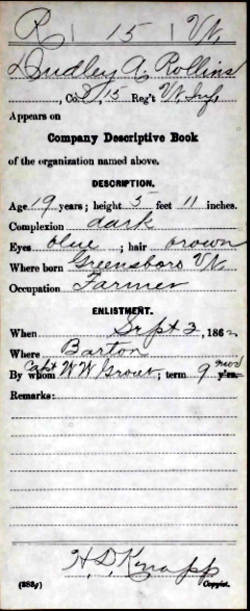 R | 15 | Vt.
Dudley A. Rollins
, Co. D, 15 Reg't Vt. Inf.
Appears on
Company Descriptive Book
of the organization named above.
DESCRIPTION.
Age 19 years; height 5 feet 11 inches.
Complexion dark
Eyes blue ; hair brown
Where born Greensboro Vt
Occupation Farmer
ENLISTMENT.
When Sept 2, 1862
Where Barton
By whom Capt W W Grout ; term 9 mos y'rs.
Remarks:
H. D. Knapp
(383g) Copyist.